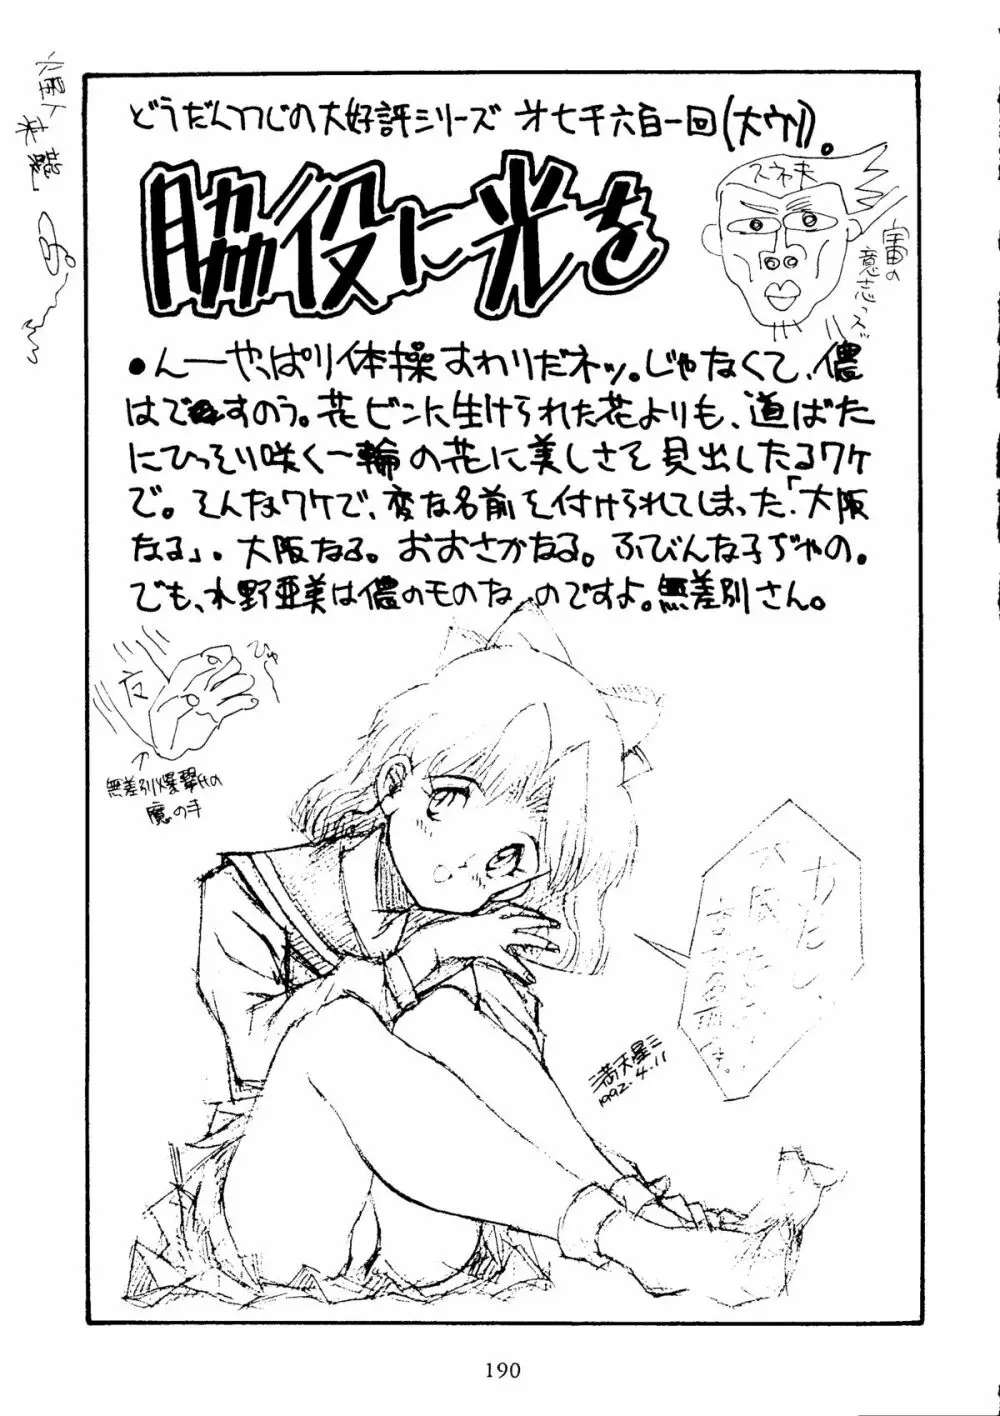 どうだんつつじの大好評シリーズ 才七千六百一回(大ウソ)。
脇役に光を
スネ夫
宇宙の
意志っス
●んーやっぱり体操すわりだネッ。じゃなくて、儂
はですのう。花ビンに生けられた花よりも、道ばた
にひっそり咲く一輪の花に美しさを見出したるワケ
で。そんなワケで、変な名前を付けられてしまった「大阪
なる」。大阪なる。おおさかなる。ふびんな子ぢゃの。
でも、水野亜美は儂のものなのですよ。無差別さん。
ひゅー
無差別爆撃氏の
魔の手
わたし、
満天星
1992.4.11
190